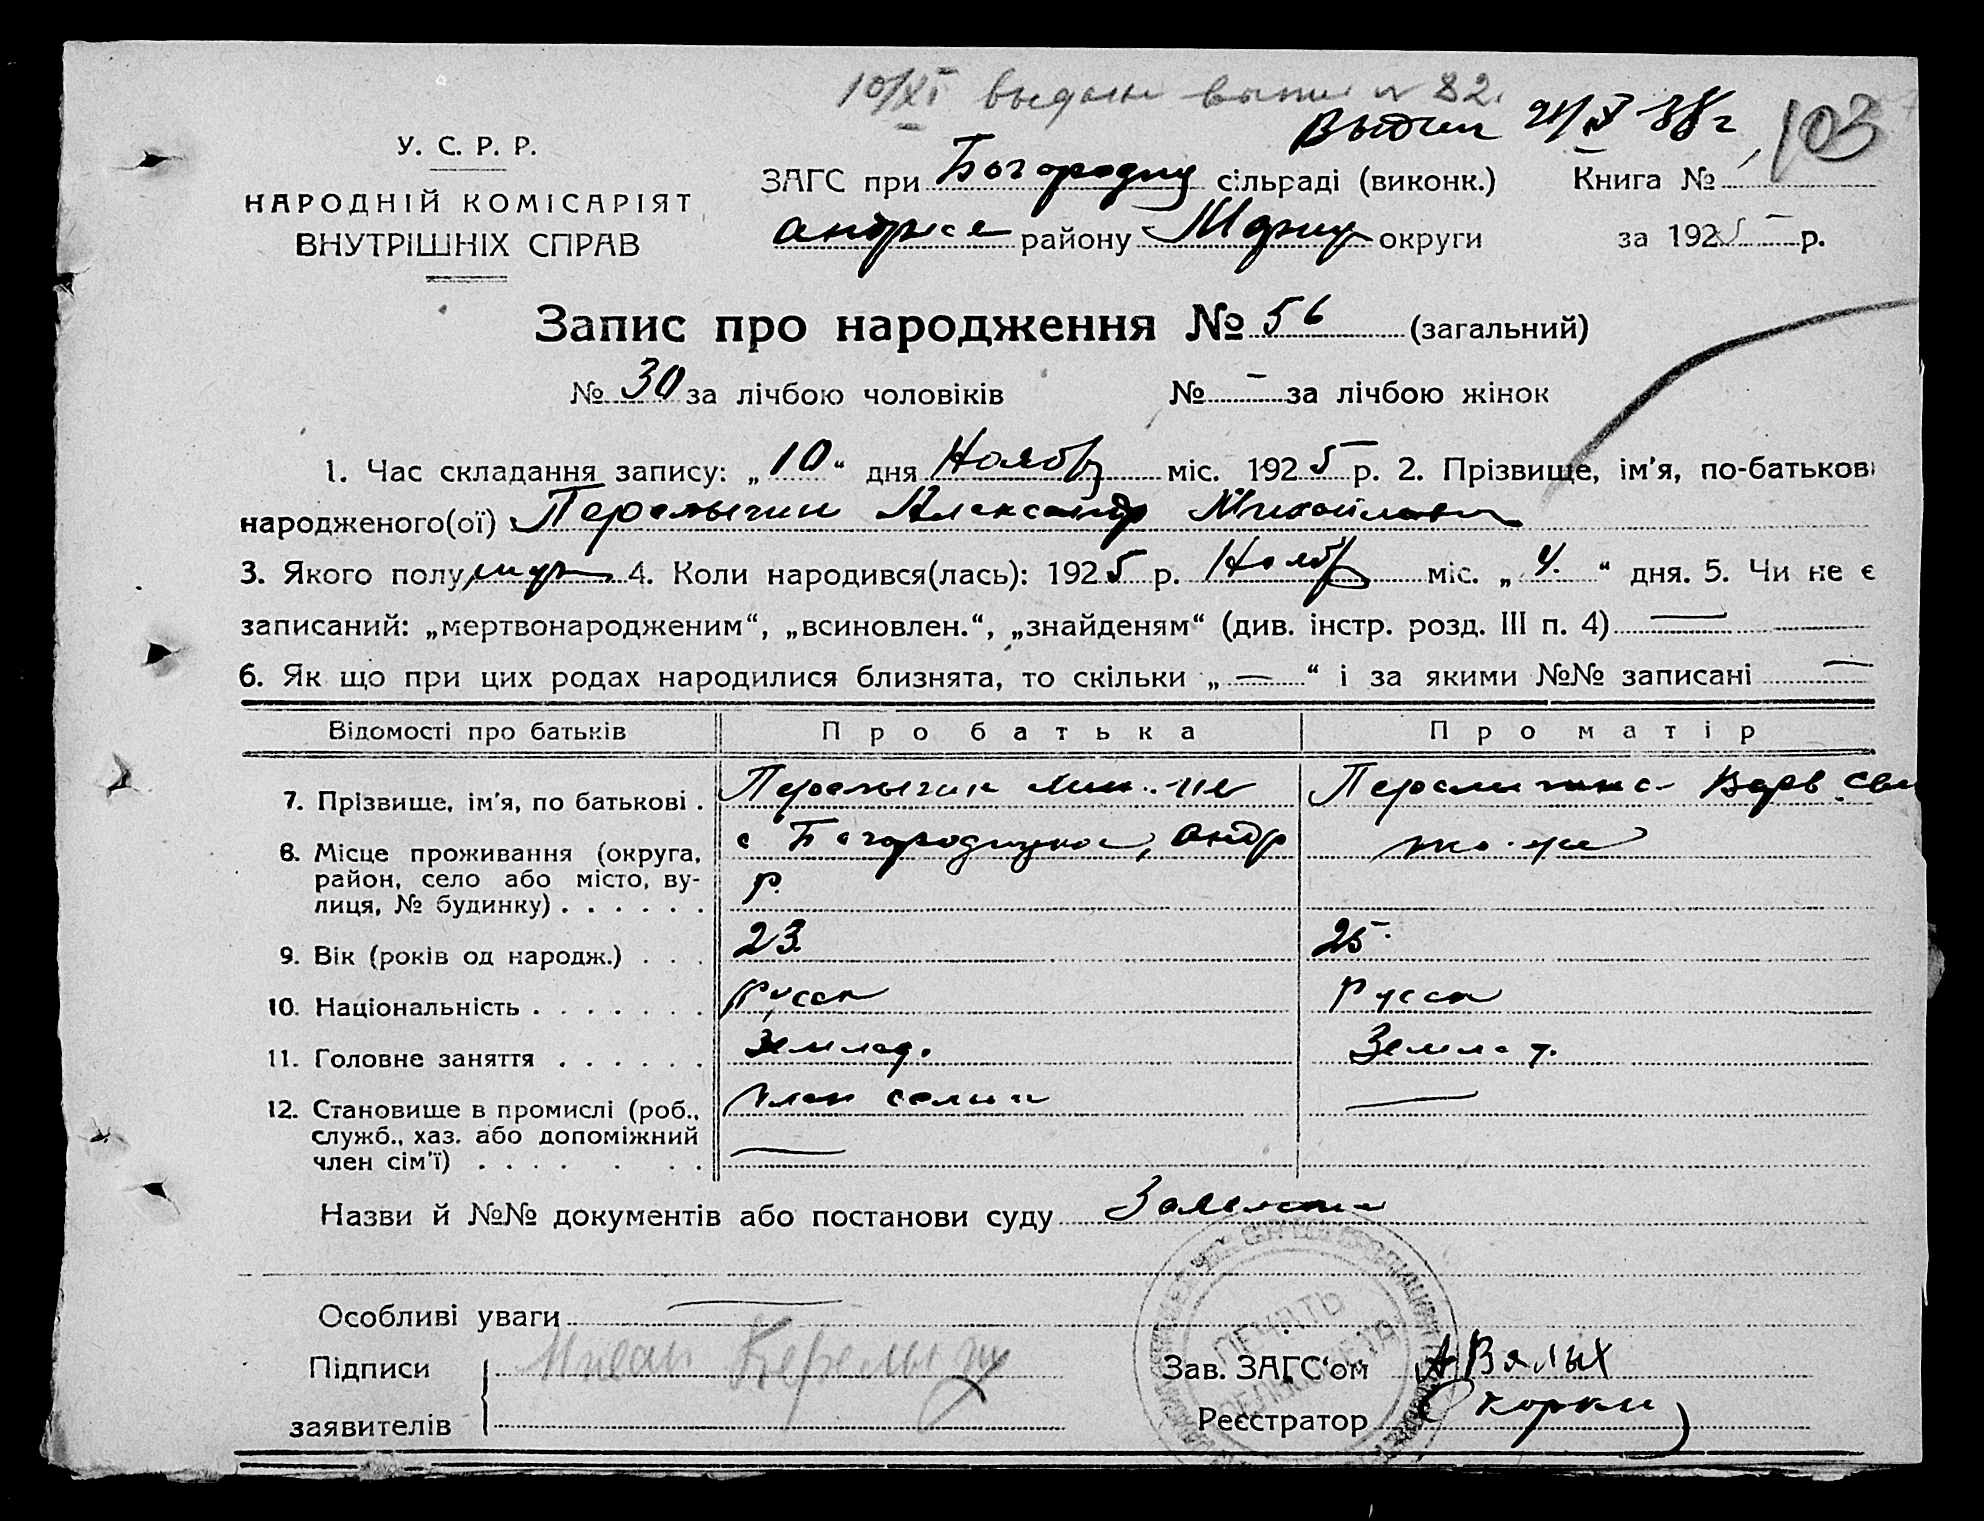 10/XI выдан выпис № 82.
Выдан 21/X 38 г
103
У. С. Р. Р.
НАРОДНІЙ КОМІСАРІЯТ
ВНУТРІШНІХ СПРАВ
ЗАГС при Богородиц сільраді (виконк.) Книга №
андрее району Мариуп округи за 1925 р.
Запис про народження № 56 (загальний)
№ 30 за лічбою чоловіків № — за лічбою жінок
1. Час складання запису: „10“ дня Ноябр міс. 1925 р. 2. Прізвище, ім'я, по-батькові
народженого(ої) Перелыгин Александр Михайлович
3. Якого полу муж 4. Коли народився(лась): 1925 р. Ноябр міс. „4.“ дня. 5. Чи не є
записаний: „мертвонародженим“, „всиновлен.“, „знайденям“ (див. інстр. розд. III п. 4) —
6. Як що при цих родах народилися близнята, то скільки „—“ і за якими №№ записані —
Відомості про батьків Про батька Про матір
7. Прізвище, ім'я, по батькові . Перелыгин Перелыгина Варв
8. Місце проживання (округа, район, село або місто, вулиця, № будинку) . . . . . . с Богородицкое, андр р. то-же
9. Вік (років од народж.) . . . 23. 25.
10. Національність . . . . . . . Русск Русск
11. Головне заняття . . . . . . Землед. Землед.
12. Становище в промислі (роб., служб., хаз. або допоміжний член сім'ї) . . . . . . . член семьи — —
Назви й №№ документів або постанови суду
Особливі уваги —
Підписи
заявителів
Перелыги
ПЕЧАТЬ
СЕЛЬСОВЕТА
Зав. ЗАГС‘ом А Вялых
Реєстратор